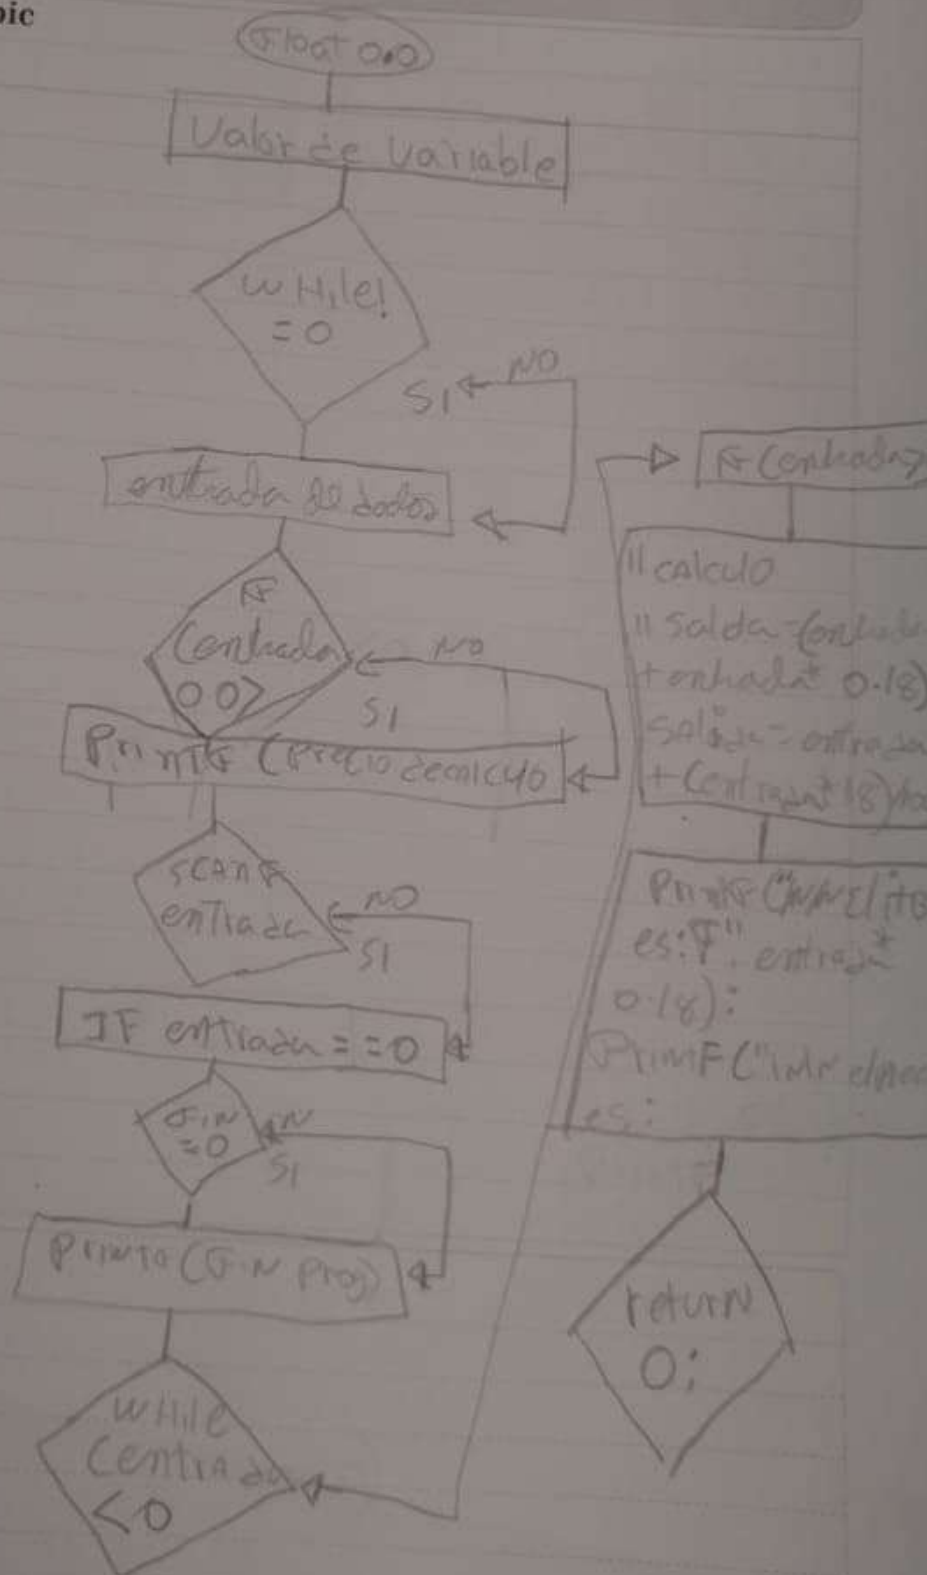 pic
Float 0.0
Valor de Variable
WHile!
= 0
NO
SI
entrada de dados
IF
(entrada
0 0>
NO
SI
PrintF (Precio de calculo
SCANF
entrada
NO
SI
IF entrada = = 0
FiN
= 0
N
SI
Printo (FiN Prog)
WHile
(entrada
< 0
IF (entrada>
11 calculo
11 Salda = (entrada
+ entrada* 0.18)
Salida = entrada
+ (entrada* 18)
PrintF (
es: F". entrada*
0.18):
PrimF ("
es:
return
0;